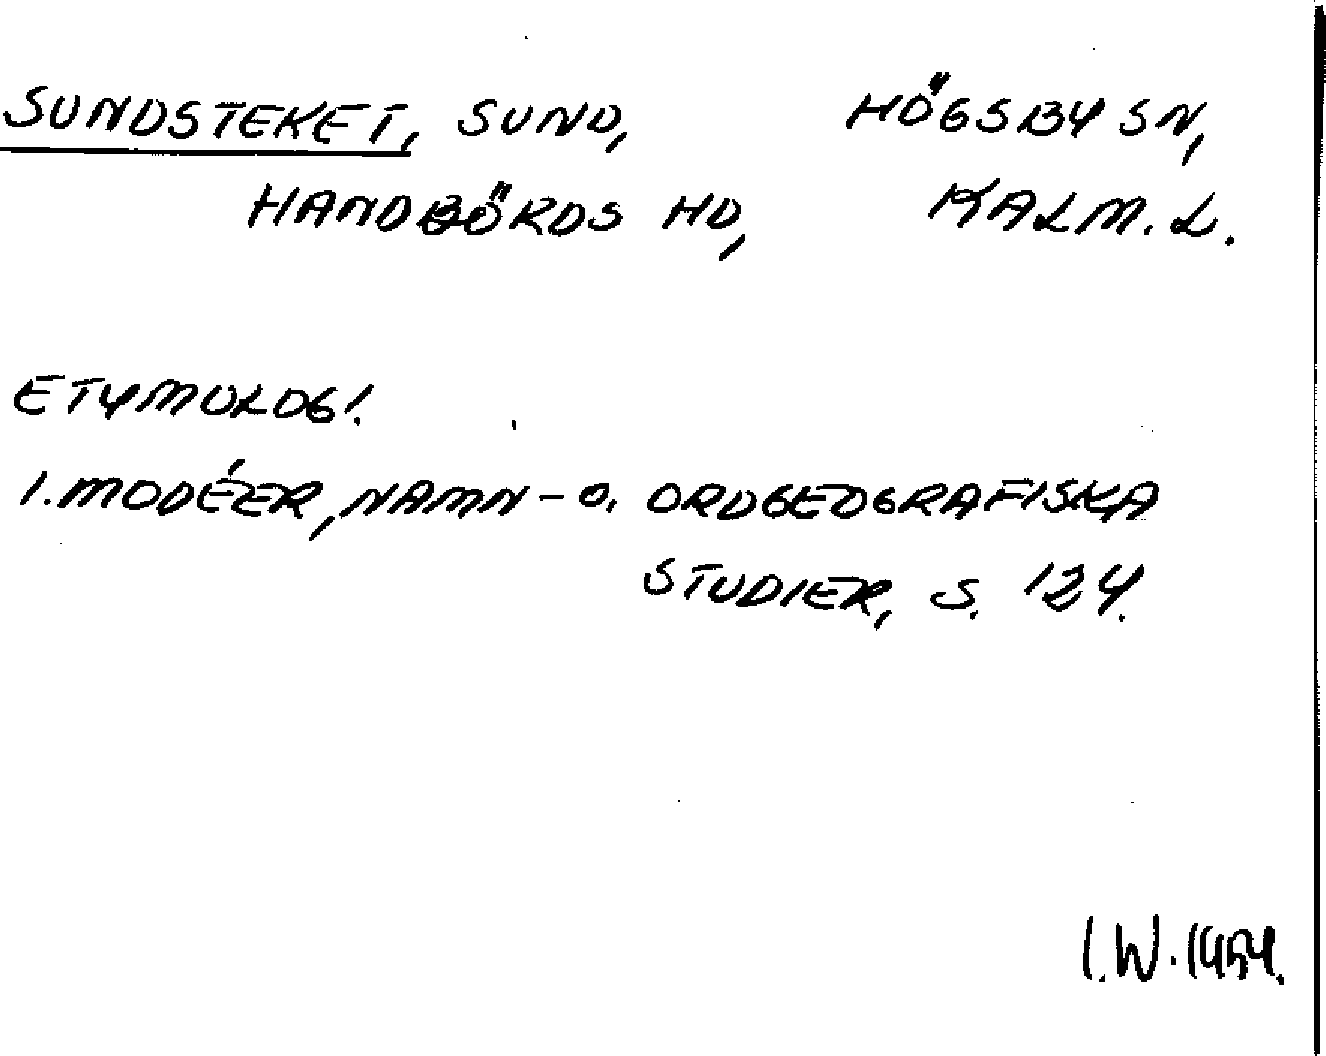 SUNDSTEKET, SUND, HÖGSBY SN,
HANDBÖRDS HD, KALM. L.
ETYMOLOGI.
I. MODÉER, NAMN- O. ORDGEOGRAFISKA
STUDIER, S. 124.
I. W. 1954.